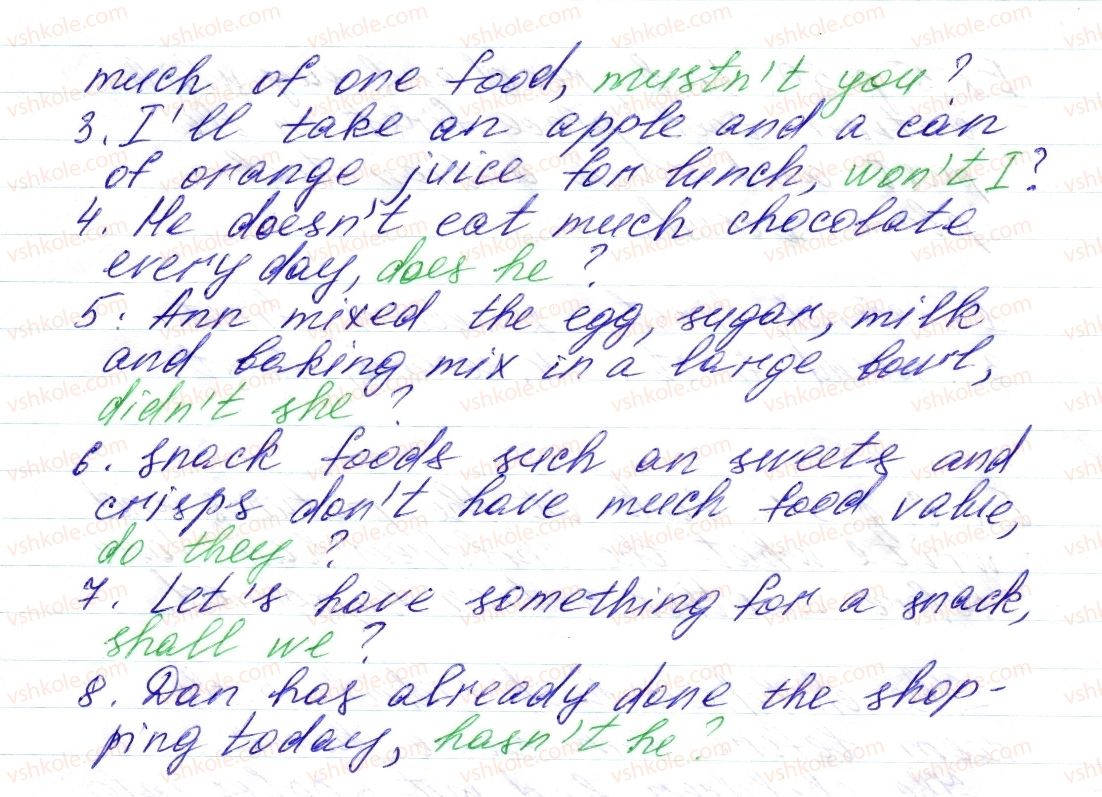 much of one food, mustn't you?
3. I'll take an apple and a can
of orange juice for lunch, won't I?
4. He doesn't eat much chocolate
every day, does he?
5. Ann mixed the egg, sugar, milk
and baking mix in a large bowl,
didn't she?
6. Snack foods such an sweets and
crisps don't have much food value,
do they?
7. Let's have something for a snack,
shall we?
8. Dan has already done the shop-
ping today, hasn't he?